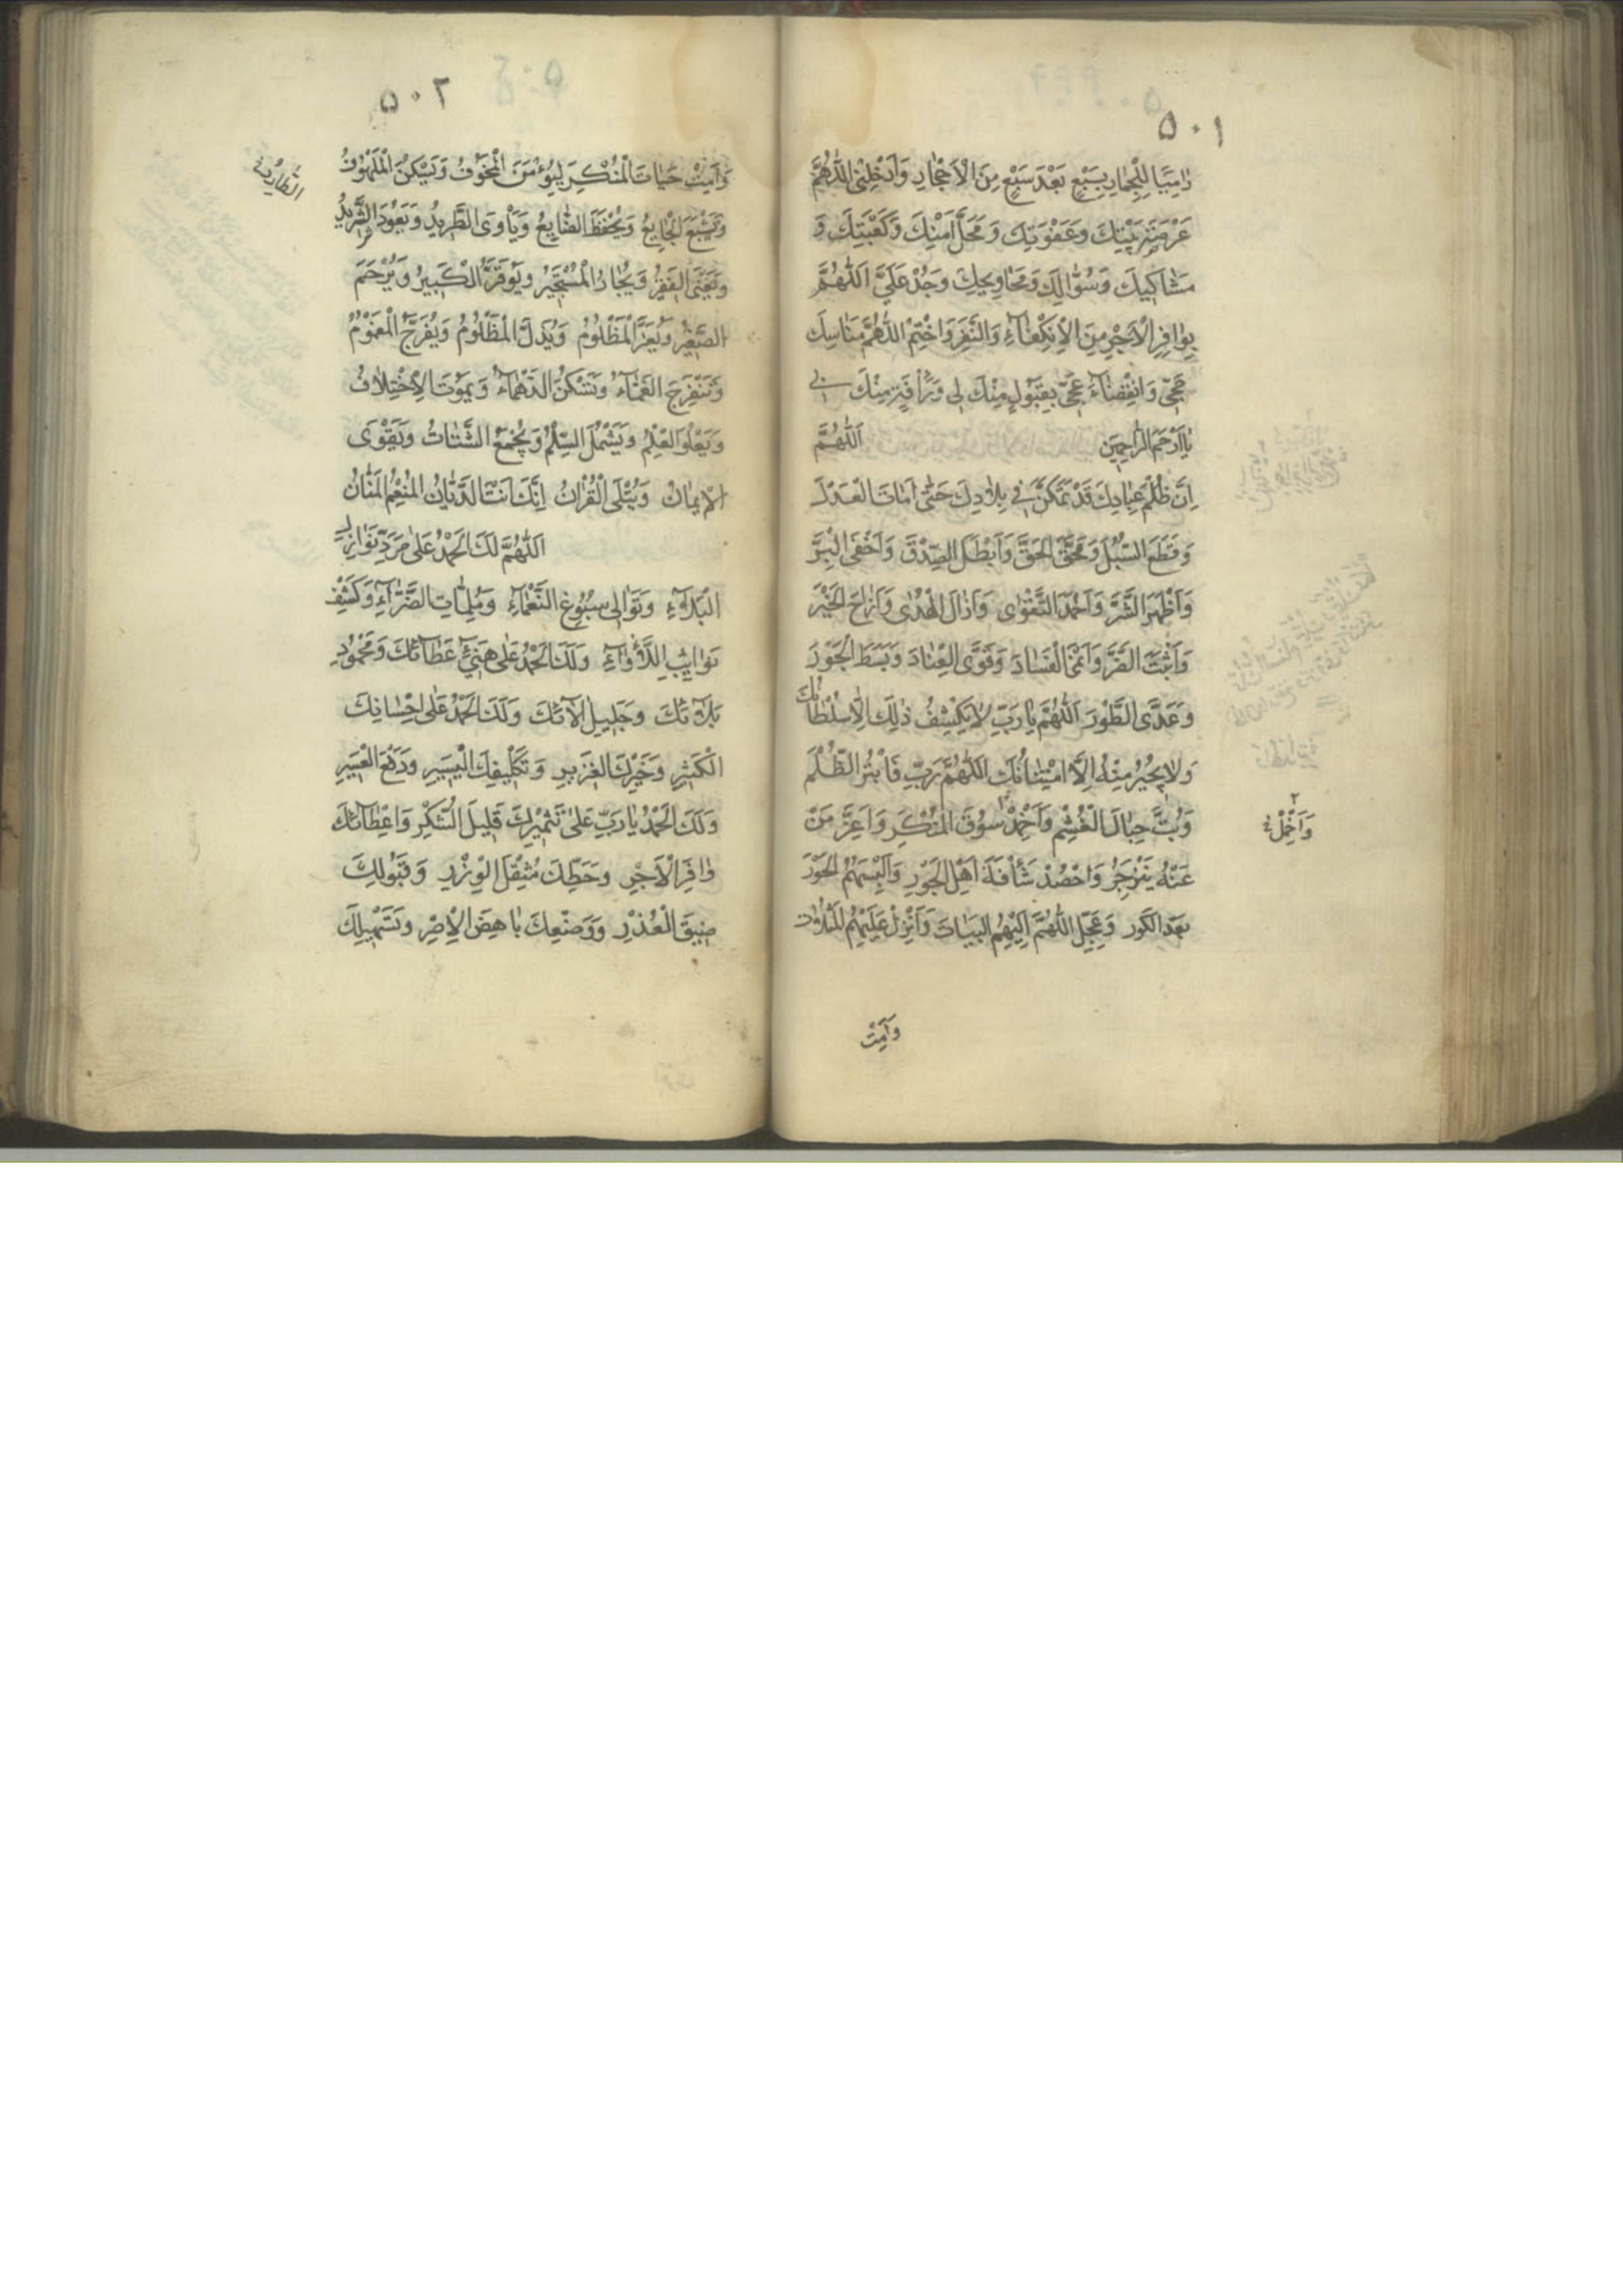 ٥٠١
رٰامِيًا لِلْجِمٰارِ بِسَبْعٍ بَعْدَ سَبْعٍ مِنَ الْاَحْجٰارِ وَاَدْخِلْنِى اللّٰهُمَّ
عَرْصَةَ بَيْتِكَ وَعَقْوَتِكَ وَمَحَلَّ اَمْنِكَ وَكَعْبَتِكَ وَ
مَشٰاكِيكَ وَسُؤّٰالِكَ وَمَحٰاوِيجِكَ وَجُدْ عَلَىَّ اَللّٰهُمَّ
بِوٰافِرِ الْاَجْرِ مِنَ الْاِنْكِفٰاۤءِ وَالنَّفْرِ وَاخْتِمْ اللّٰهُمَّ مَنٰاسِكَ
حَجّى وَانْقِضٰاۤءَ عَجّى بِقَبُولٍ مِنْكَ لِى وَرَأْفَةٍ مِنْكَ بى
يٰا اَرْحَمَ الرّٰاحِمِينَ اَللّٰهُمَّ
اِنَّ ظُلْمَ عِبٰادِكَ قَدْ تَمَكَّنَ فِى بِلٰادِكَ حَتّٰى اَمٰاتَ الْعَدْلَ
وَقَطَعَ السُّبُلَ وَمَحَقَ الْحَقَّ وَاَبْطَلَ الصِّدْقَ وَاَخْفَى الْبِرَّ
وَاَظْهَرَ الشَّرَّ وَاَخْمَدَ التَّقْوٰى وَاَزٰالَ الْهُدٰى وَاَزٰاحَ الْخَيْرَ
وَاَثْبَتَ الضَّرَّ وَاَنْمَى الْفَسٰادَ وَقَوَّى الْعِنٰادَ وَبَسَطَ الْجَوْرَ
وَعَدَّى الطَّوْرَ اَللّٰهُمَّ يٰا رَبِّ لٰا يَكْشِفُ ذٰلِكَ اِلّٰا سُلْطٰانُكَ
وَلٰا يُجِيرُ مِنْهُ اِلّٰا امْتِنٰانُكَ اَللّٰهُمَّ رَبِّ فَابْتُرْ الظُّلْمَ
وَبُتَّ حِبٰالَ الْغَشْمِ وَاَخْمِدْ سُوقَ الْمُنْكَرِ وَاَعِزَّ مَنْ
وَاَخْمِلْ
عَنْهُ يَنْزَجِرُ وَاحْصُدْ شَأْفَةَ اَهْلِ الْجَوْرِ وَاَلْبِسْهُمُ الْحَوْرَ
بَعْدَ الْكَورِ وَعَجِّلِ اللّٰهُمَّ اِلَيْهِمُ الْبَيٰاتَ وَاَنْزِلْ عَلَيْهِمُ الْمَثُلٰاتِ
وَاَمِتْ
٥٠٢
وَاَمِتْ حَيٰاتَ الْمُنْكَرِ لِيُؤْمَنَ الْمَخُوفُ وَيَسْكُنَ الْمَلْهُوفُ
وَيَشْبَعَ الْجٰايِعُ وَيُحْفَظَ الضّٰايِعُ وَيَأْوَى الطَّرِيدُ وَيَعُودَ الشَّرِيدُ
وَيُغْنَى الْفَقِيرُ وَيُجٰارُ الْمُسْتَجِيرُ وَيُوَقَّرَ الْكَبِيرُ وَيُرْحَمَ
الصَّغِيرُ وَيُعَزَّ الْمَظْلُومُ وَيُذَلَّ الْمَظْلُومُ وَيُفَرَّجَ الْمَغْمُومُ
وَتَنْفَرِجَ الْغَمّٰاۤءُ وَتَسْكُنَ الدَّهْمٰاۤءُ وَيَمُوتَ الْاِخْتِلٰافُ
وَيَعْلُوَ الْعِلْمُ وَيَشْمُلَ السِّلْمُ وَيُجْمَعَ الشَّتٰاتُ وَيَقْوَى
الْاِيمٰانُ وَيُتْلَى الْقُرْاٰنُ اِنَّكَ اَنْتَ الدَّيّٰانُ الْمُنْعِمُ الْمَنّٰانُ
اَللّٰهُمَّ لَكَ الْحَمْدُ عَلٰى مَرَدِّ نَوٰازِلِ
الْبَلٰاۤءِ وَتَوٰالِى سُبُوغِ النَّعْمٰاۤءِ وَمُلِمّٰاتِ الضَّرّٰاۤءِ وَكَشْفِ
نَوٰايِبِ اللَّأْوٰاۤءِ وَلَكَ الْحَمْدُ عَلٰى هَنِيۤءِ عَطٰاۤئِكَ وَمَحْمُودِ
بَلٰاۤئِكَ وَجَلِيلِ اٰلٰاۤئِكَ وَلَكَ الْحَمْدُ عَلٰى اِحْسٰانِكَ
الْكَثِيرِ وَخَيْرِكَ الْغَزِيرِ وَتَكْلِيفِكَ الْيَسِيرِ وَدَفْعِ الْعَسِيرِ
وَلَكَ الْحَمْدُ يٰا رَبِّ عَلٰى تَثْمِيرِكَ قَلِيلَ الشُّكْرِ وَاِعْطٰاۤئِكَ
وٰافِرَ الْاَجْرِ وَحَطِّكَ مُثْقَلَ الْوِزْرِ وَقَبُولِكَ
ضِيقَ الْعُذْرِ وَوَضْعِكَ بٰاهِضَ الْاِصْرِ وَتَسْهِيلِكَ